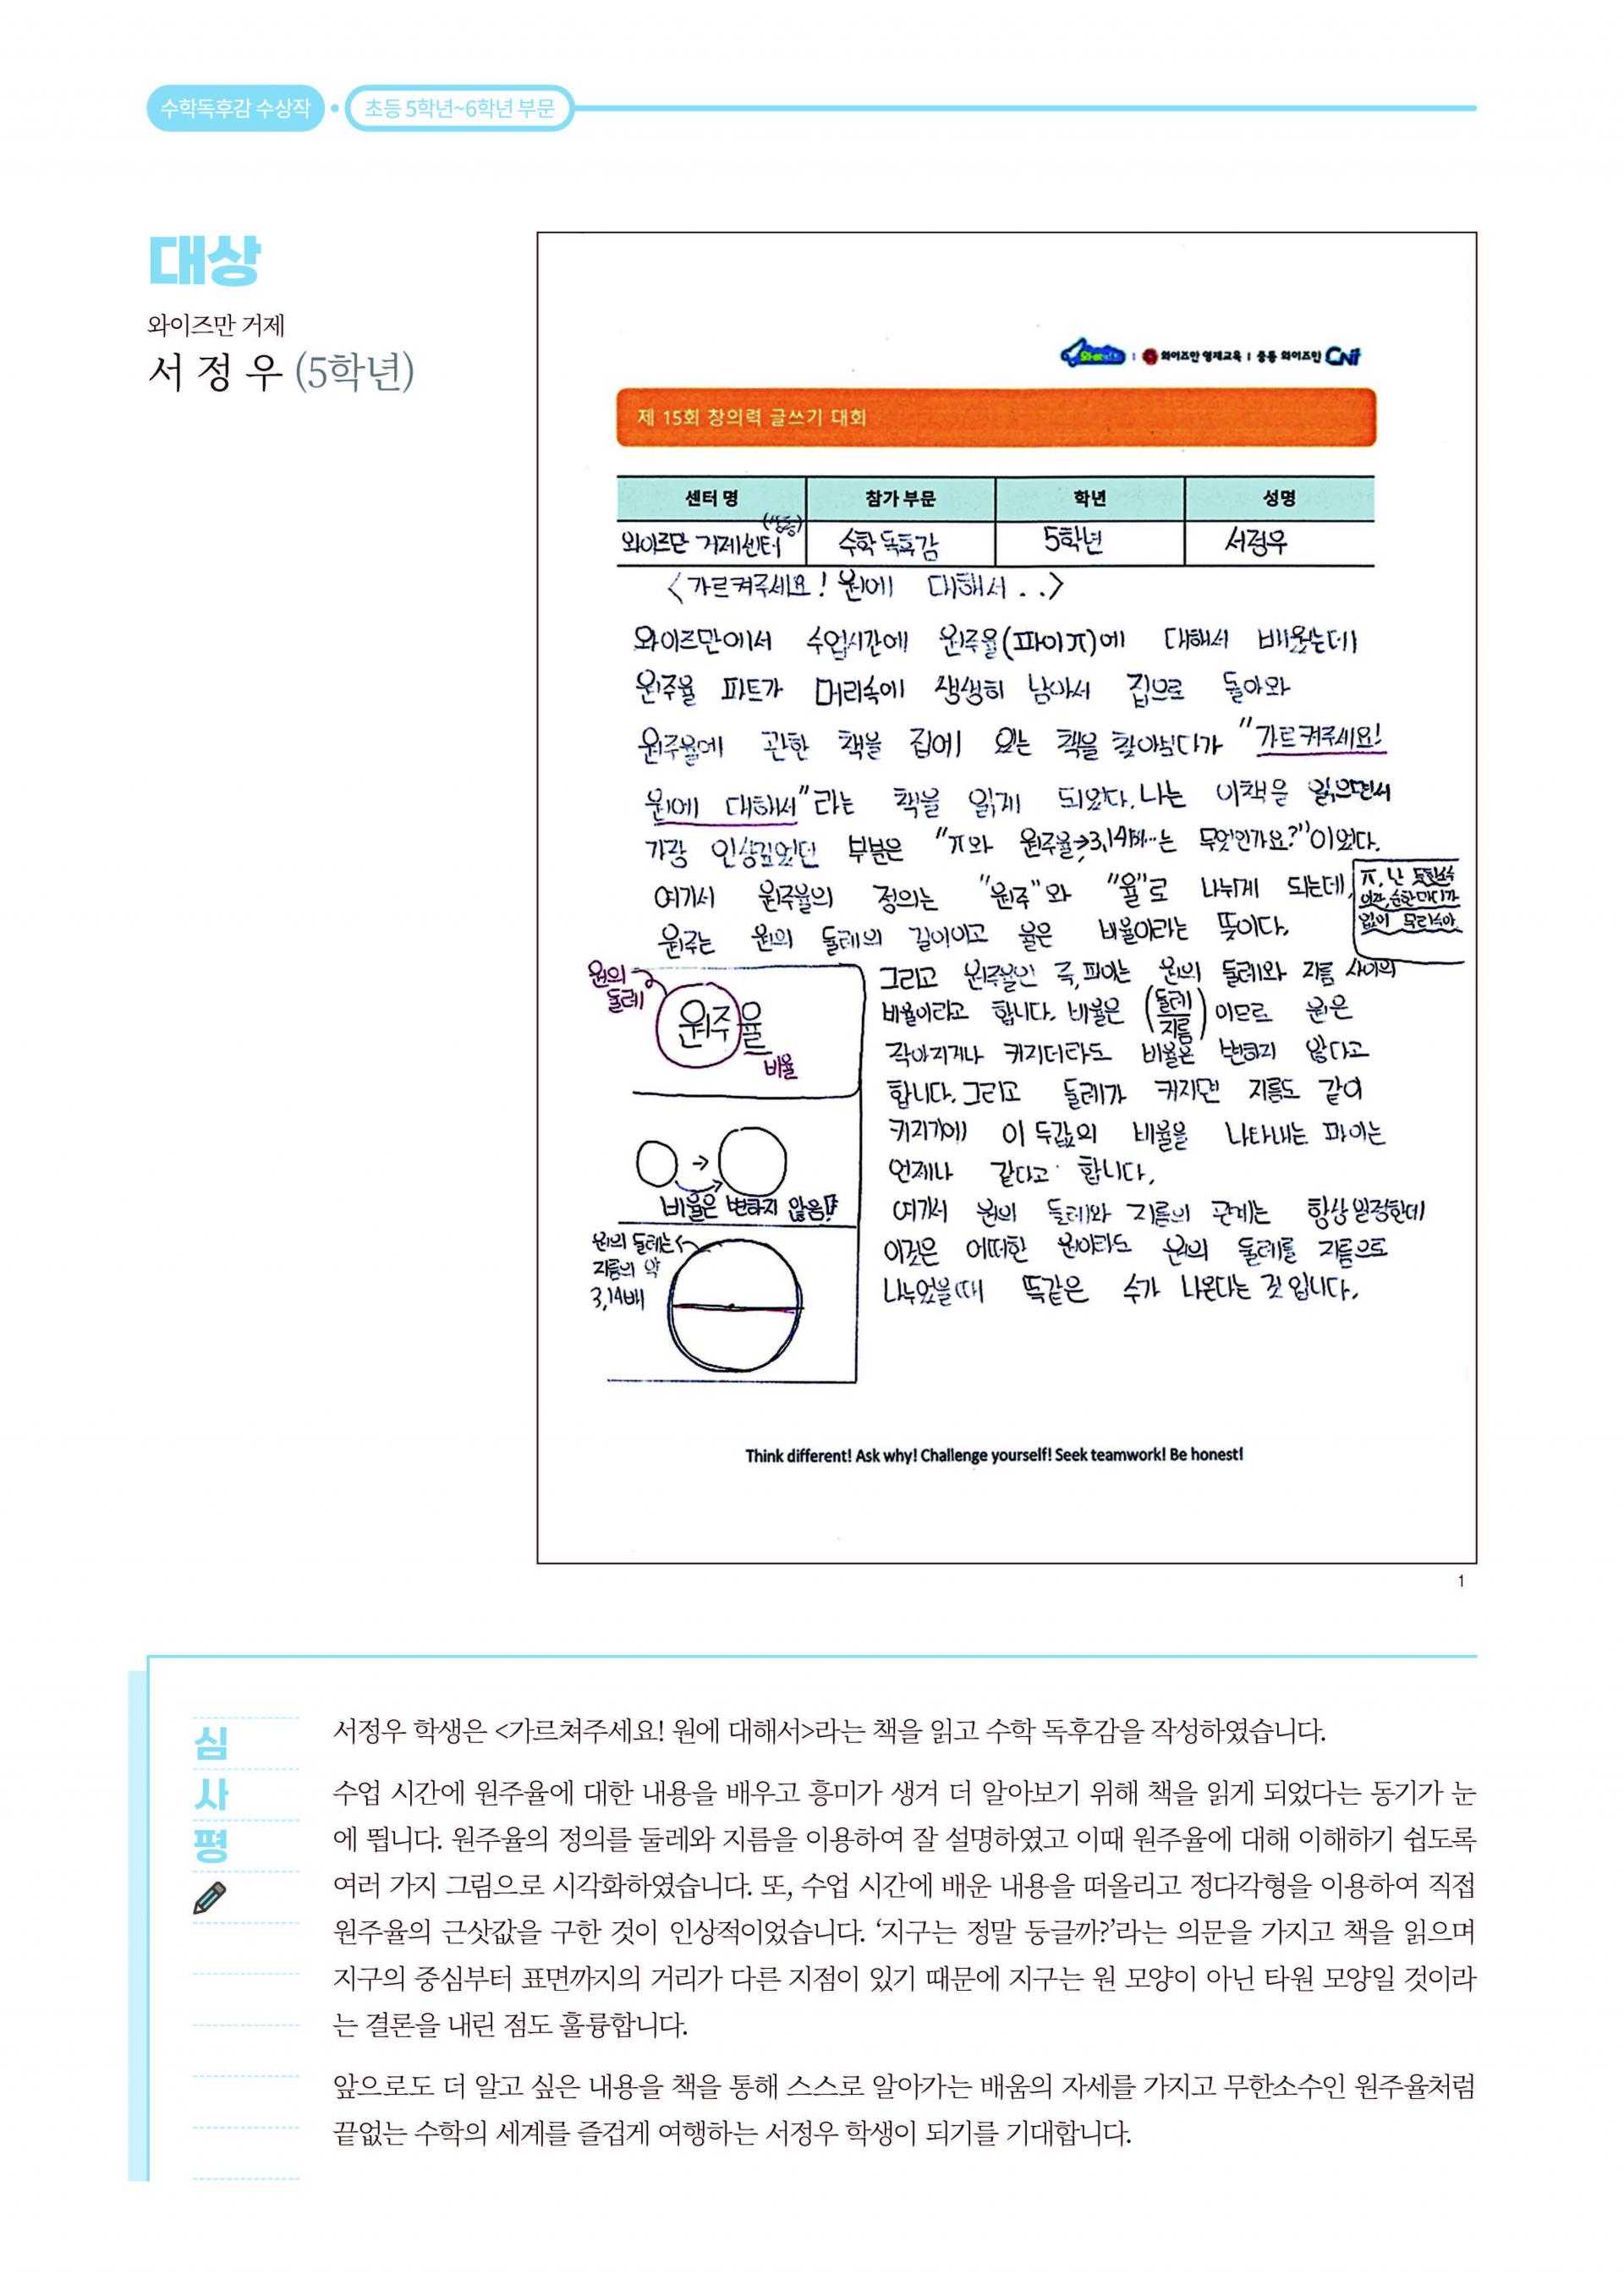 수학독후감 수상작 • 초등 5학년~6학년 부문
대상
와이즈만 거제
서 정 우 (5학년)
와이즈만 영재교육 | 중등 와이즈만 CNi
제 15회 창의력 글쓰기 대회
센터 명 참가 부문 학년 성명
와이즈만 거제센터 수학 독후감 5학년 서정우
<가르켜주세요! 원에 대해서..>
와이즈만에서 수업시간에 원주율(파이π)에 대해서 배웠는데
원주율 파트가 머리속에 생생히 남아서 집으로 돌아와
원주율에 관한 책을 집에 있는 책을 찾아보다가 "가르켜주세요!
원에 대해서"라는 책을 읽게 되었다. 나는 이책을 읽으면서
가장 인상깊었던 부분은 "π와 원주율→3.14...는 무엇인가요?"이었다.
여기서 원주율의 정의는 "원주"와 "율"로 나뉘게 되는데,
원주는 원의 둘레의 길이이고 율은 비율이라는 뜻이다.
π, 난
없이 무리수야.
원의
둘레
원주율
비율
비율은 변하지 않음!
원의 둘레는
지름의 약
3.14배
그리고 원주율인 즉, 파이는 원의 둘레와 지름 사이의
비율이라고 합니다. 비율은 (둘레/지름) 이므로 원은
작아지거나 커지더라도 비율은 변하지 않다고
합니다. 그리고 둘레가 커지면 지름도 같이
커지기에 이 두값의 비율을 나타내는 파이는
언제나 같다고 합니다.
여기서 원의 둘레와 지름의 관계는 항상 일정한데
이것은 어떠한 원이라도 원의 둘레를 지름으로
나누었을때 똑같은 수가 나온다는 것 입니다.
Think different! Ask why! Challenge yourself! Seek teamwork! Be honest!
1
심사평
서정우 학생은 <가르쳐주세요! 원에 대해서>라는 책을 읽고 수학 독후감을 작성하였습니다.
수업 시간에 원주율에 대한 내용을 배우고 흥미가 생겨 더 알아보기 위해 책을 읽게 되었다는 동기가 눈
에 띕니다. 원주율의 정의를 둘레와 지름을 이용하여 잘 설명하였고 이때 원주율에 대해 이해하기 쉽도록
여러 가지 그림으로 시각화하였습니다. 또, 수업 시간에 배운 내용을 떠올리고 정다각형을 이용하여 직접
원주율의 근삿값을 구한 것이 인상적이었습니다. ‘지구는 정말 둥글까?’라는 의문을 가지고 책을 읽으며
지구의 중심부터 표면까지의 거리가 다른 지점이 있기 때문에 지구는 원 모양이 아닌 타원 모양일 것이라
는 결론을 내린 점도 훌륭합니다.
앞으로도 더 알고 싶은 내용을 책을 통해 스스로 알아가는 배움의 자세를 가지고 무한소수인 원주율처럼
끝없는 수학의 세계를 즐겁게 여행하는 서정우 학생이 되기를 기대합니다.